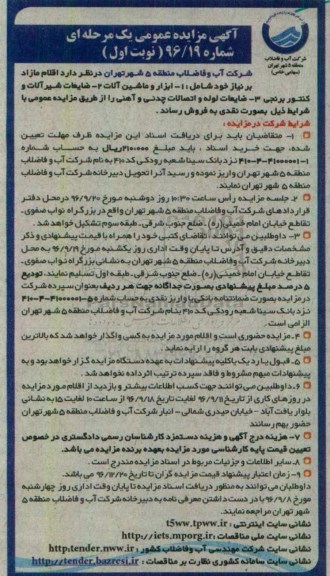 آگهی مزایده عمومی یک مرحله ای
شماره ۹۶/۱۹ (نوبت اول)
شرکت آب و فاضلاب
منطقه ۵ شهر تهران
(سهامی خاص)
شرکت آب وفاضلاب منطقه ۵ شهرتهران درنظر دارد اقلام مازاد
بر نیاز خود شامل: ۱- ابزار و ماشین آلات ۲- ضایعات شیرآلات و
کنتور برنجی ۳- ضایعات لوله و اتصالات چدنی و آهنی را از طریق مزایده عمومی با
شرایط ذیل بصورت نقدی به فروش رساند.
شرایط شرکت درمزایده:
۱- متقاضیان باید برای دریافت اسناد این مزایده ظرف مهلت تعیین
شده، جهت خرید اسناد، باید مبلغ ریال به حساب شماره
نزد بانک سینا شعبه رودکی کد ۴۱۰ به نام شرکت آب و فاضلاب
منطقه ۵ شهر تهران واریز نموده و رسید آنرا تحویل دبیرخانه شرکت آب و فاضلاب
منطقه ۵ شهر تهران نمایند.
۲- جلسه مزایده رأس ساعت ۱۰:۳۰ روز دوشنبه مورخ ۹۶/۹/۲۰ درمحل دفتر
قراردادهای شرکت آب وفاضلاب منطقه ۵ شهر تهران واقع در بزرگراه نواب صفوی،
تقاطع خیابان امام خمینی(ره)، ضلع جنوب شرقی، طبقه سوم تشکیل خواهد شد.
۳- داوطلبین می توانند، تقاضای کتبی خود را همراه با قیمت پیشنهادی و ذکر
مشخصات دقیق و آدرس تا پایان وقت اداری روز یکشنبه مورخ ۹۶/۹/۱۹ به محل
دبیرخانه شرکت آب وفاضلاب منطقه ۵ شهر تهران به نشانی بزرگراه نواب صفوی،
تقاطع خیابان امام خمینی(ره)، ضلع جنوب شرقی، طبقه اول تسلیم نمایند، تودیع
۵ درصد مبلغ پیشنهادی بصورت جداگانه جهت هر ردیف بعنوان سپرده شرکت
در مزایده بصورت ضمانتنامه بانکی یا واریز نقدی به حساب شماره
نزد بانک سینا شعبه رودکی کد ۴۱۰ بنام شرکت آب و فاضلاب منطقه ۵ شهر تهران
الزامی است.
۴- مزایده حضوری است و اقلام مورد مزایده به کسی واگذار خواهد شد که بالاترین
مبلغ پیشنهادی بابت هر گروه را ارایه نماید.
۵- قبول یا رد یک یا کلیه پیشنهادات به عهده دستگاه مزایده گزار خواهد بود و به
پیشنهادات مبهم مشروط و فاقد سپرده ترتیب اثر داده نخواهد شد.
۶- داوطلبین می توانند جهت کسب اطلاعات بیشتر و بازدید از اقلام مورد مزایده
در روزهای کاری از تاریخ ۹۶/۹/۱۱ لغایت تاریخ ۹۶/۹/۱۸ از ساعت ۱۰ لغایت ۱۵ به نشانی
بلوار یافت آباد - خیابان حیدری شمالی - انبار شرکت آب و فاضلاب منطقه ۵ شهر تهران
حضور بهم رسانند
۷- هزینه درج آگهی و هزینه دستمزد کارشناسان رسمی دادگستری در خصوص
تعیین قیمت پایه کارشناسی مورد مزایده بعهده برنده مزایده می باشد.
۸- سایر اطلاعات و جزئیات مربوط در اسناد مزایده مندرج است.
۹- زمان اعتبار پیشنهاد قیمت مزایده گران تا تاریخ می باشد.
داوطلبان می توانند به منظور دریافت اسناد مزایده تا پایان وقت اداری روز چهارشنبه
مورخ ۹۶/۹/۸ با در دست داشتن معرفی نامه به دبیرخانه شرکت آب و فاضلاب منطقه ۵
شهر تهران مراجعه نمایند.
نشانی سایت اینترنتی: t5ww.tpww.ir
نشانی سایت ملی مناقصات: http://iets.mporg.ir
نشانی سایت شرکت مهندسی آب وفاضلاب کشور: http:tender.nww.ir
نشانی سایت سامانه کشوری نظارت بر مناقصات: http://tender.bazresi.ir